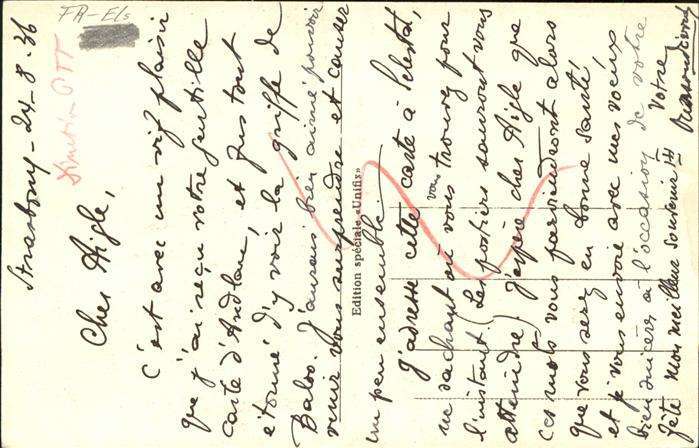 FR-Els
Strasbourg - 24-8-36
Direction PTT
Cher Aigle,
C'est avec un vif plaisir
que j'ai reçu votre gentille
carte d'Andlau, et fus tout
étonné d'y voir la griffe de
Baloo. J'aurais bien aimé pouvoir
venir vous surprendre et causer
un peu ensemble.
J'adresse cette carte à Sélestat,
ne sachant où vous trouver pour
l'instant (les postiers sauront vous
atteindre). J'espère cher Aigle que
ces mots vous parviendront alors
que vous serez en bonne santé
et je vous envoie avec mes vœux
bien sincères à l'occasion de votre
fête mon meilleur souvenir
Votre
Edition spéciale «Unifix»